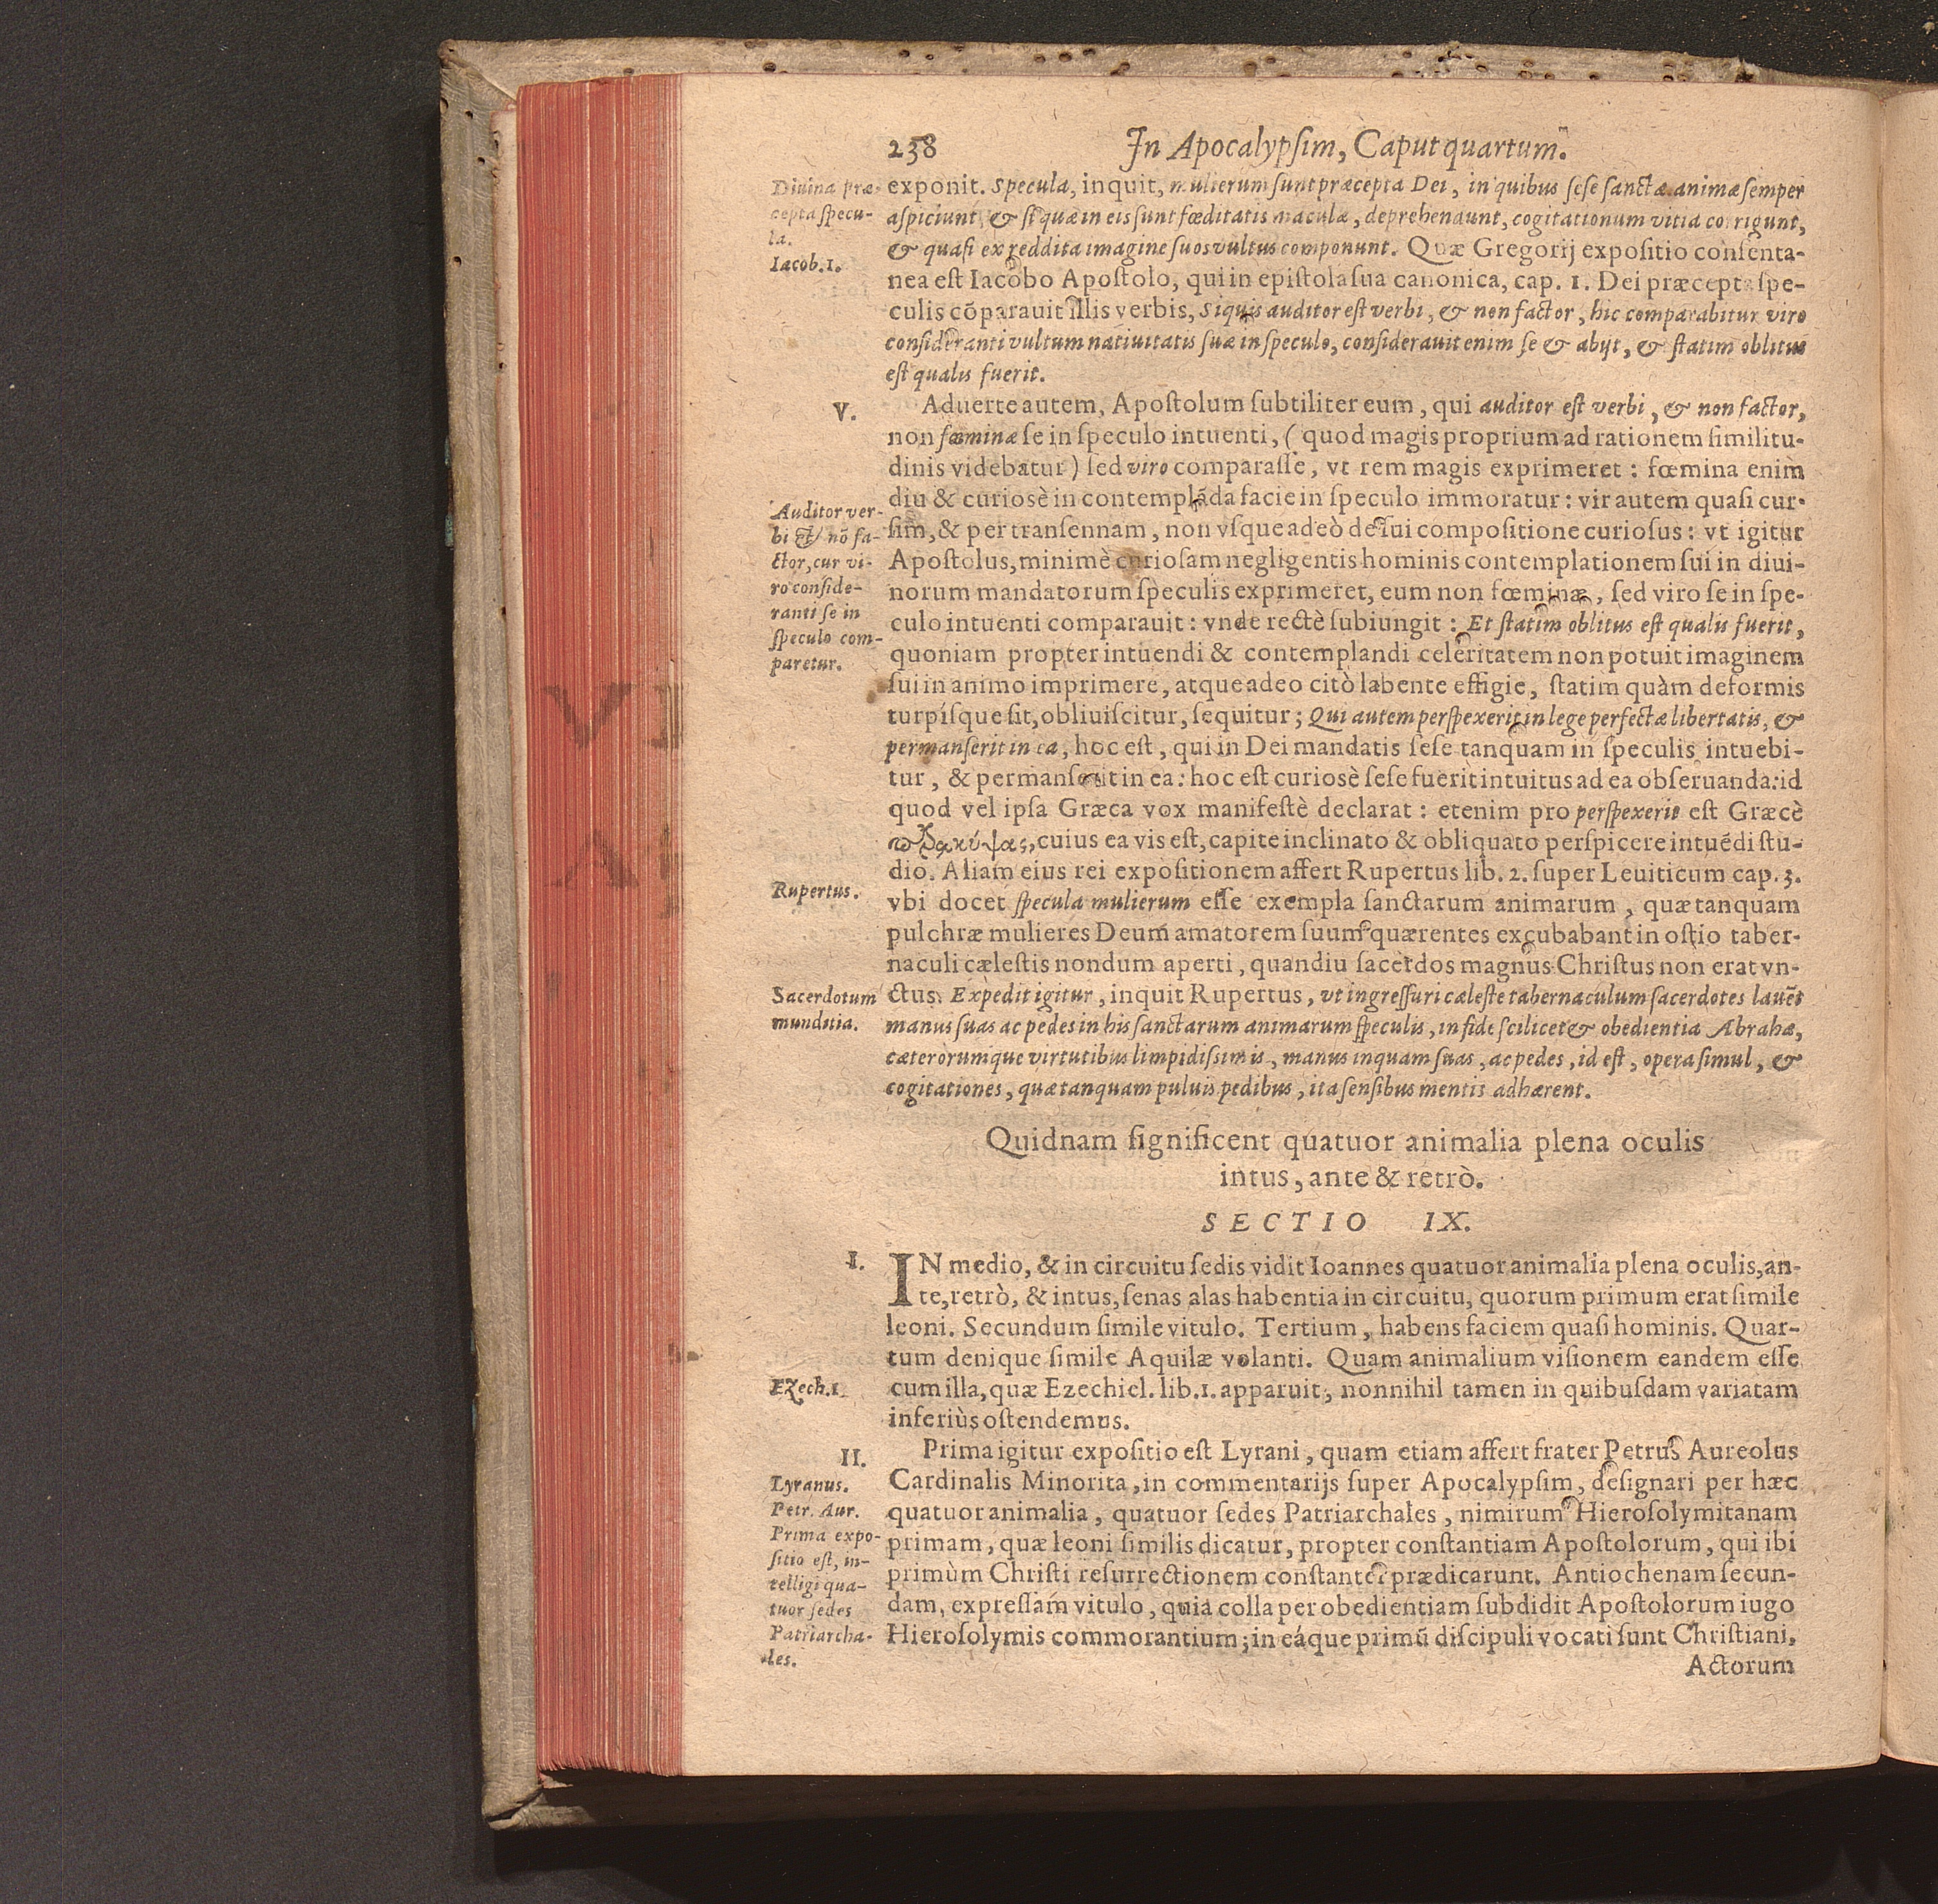 238 In Apocalypſim, Caput quartum.
Diuina præ-
cepta ſpecu-
la.
Iacob. 1.
exponit. Specula, inquit, mulierum ſunt præcepta Dei, in quibus ſeſe ſanctæ animæ ſemper
aſpiciunt, & ſi quæ in eis ſunt fœditatis maculæ, deprehendunt, cogitationum vitia corrigunt,
& quaſi ex reddita imagine ſuos vultus componunt. Quæ Gregorij expoſitio conſenta-
nea eſt Iacobo Apoſtolo, qui in epiſtola ſua canonica, cap. 1. Dei præcepta ſpe-
culis cōparauit illis verbis, Siquis auditor eſt verbi, & non factor, hic comparabitur viro
conſideranti vultum natiuitatis ſuæ in ſpeculo, conſiderauit enim ſe & abijt, & ſtatim oblitus
eſt qualis fuerit.
V.
Aduerte autem, Apoſtolum ſubtiliter eum, qui auditor eſt verbi, & non factor,
non fœminæ ſe in ſpeculo intuenti, (quod magis proprium ad rationem ſimilitu-
dinis videbatur) ſed viro comparaſſe, vt rem magis exprimeret: fœmina enim
diu & curioſè in contemplāda facie in ſpeculo immoratur: vir autem quaſi cur-
ſim, & per tranſennam, non vſque adeò de ſui compoſitione curioſus: vt igitur
Apoſtolus, minimè curioſam negligentis hominis contemplationem ſui in diui-
norum mandatorum ſpeculis exprimeret, eum non fœminæ, ſed viro ſe in ſpe-
culo intuenti comparauit: vnde rectè ſubiungit: Et ſtatim oblitus eſt qualis fuerit,
quoniam propter intuendi & contemplandi celeritatem non potuit imaginem
ſui in animo imprimere, atque adeo citò labente effigie, ſtatim quàm deformis
turpiſque ſit, obliuiſcitur, ſequitur; Qui autem perſpexerit in lege perfectæ libertatis, &
permanſerit in ea, hoc eſt, qui in Dei mandatis ſeſe tanquam in ſpeculis intuebi-
tur, & permanſerit in ea: hoc eſt curioſè ſeſe fuerit intuitus ad ea obſeruanda: id
quod vel ipſa Græca vox manifeſtè declarat: etenim pro perſpexerit eſt Græcè
παρακύψας, cuius ea vis eſt, capite inclinato & obliquato perſpicere intuēdi ſtu-
dio. Aliam eius rei expoſitionem affert Rupertus lib. 2. ſuper Leuiticum cap. 3.
vbi docet ſpecula mulierum eſſe exempla ſanctarum animarum, quæ tanquam
pulchræ mulieres Deum amatorem ſuum quærentes excubabant in oſtio taber-
naculi cæleſtis nondum aperti, quandiu ſacerdos magnus Chriſtus non erat vn-
ctus. Expedit igitur, inquit Rupertus, vt ingreſſuri cæleſte tabernaculum ſacerdotes lauēt
manus ſuas ac pedes in his ſanctarum animarum ſpeculis, in fide ſcilicet & obedientia Abrahæ,
cæterorumque virtutibus limpidiſsimis, manus inquam ſuas, ac pedes, id eſt, opera ſimul, &
cogitationes, quæ tanquam puluis pedibus, ita ſenſibus mentis adhærent.
Auditor ver-
bi & nō fa-
ctor, cur vi-
ro conſide-
ranti ſe in
ſpeculo com-
paretur.
Rupertus.
Sacerdotum
munditia.
Quidnam ſignificent quatuor animalia plena oculis
intus, ante & retrò.
SECTIO IX.
I.
IN medio, & in circuitu ſedis vidit Ioannes quatuor animalia plena oculis, an-
te, retrò, & intus, ſenas alas habentia in circuitu, quorum primum erat ſimile
leoni. Secundum ſimile vitulo. Tertium, habens faciem quaſi hominis. Quar-
tum denique ſimile Aquilæ volanti. Quam animalium viſionem eandem eſſe
cum illa, quæ Ezechiel. lib. 1. apparuit, nonnihil tamen in quibuſdam variatam
inferiùs oſtendemus.
Ezech. 1.
II.
Prima igitur expoſitio eſt Lyrani, quam etiam affert frater Petrus Aureolus
Cardinalis Minorita, in commentarijs ſuper Apocalypſim, deſignari per hæc
quatuor animalia, quatuor ſedes Patriarchales, nimirum Hieroſolymitanam
primam, quæ leoni ſimilis dicatur, propter conſtantiam Apoſtolorum, qui ibi
primùm Chriſti reſurrectionem conſtanter prædicarunt. Antiochenam ſecun-
dam, expreſſam vitulo, quia colla per obedientiam ſubdidit Apoſtolorum iugo
Hieroſolymis commorantium; in eáque primū diſcipuli vocati ſunt Chriſtiani,
Lyranus.
Petr. Aur.
Prima expo-
ſitio eſt, in-
telligi qua-
tuor ſedes
Patriarcha-
les.
Actorum